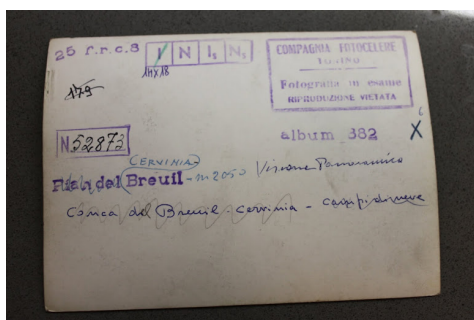 25 f.r.c.8
I N I₅ N₅
11x18
COMPAGNIA FOTOCELERE
TORINO
Fotografia in esame
RIPRODUZIONE VIETATA
179
N 52873
album 882 X
CERVINIA
Pian del Breuil - m 2050 Visione Panoramica
Conca del Breuil. Cervinia - campi di neve